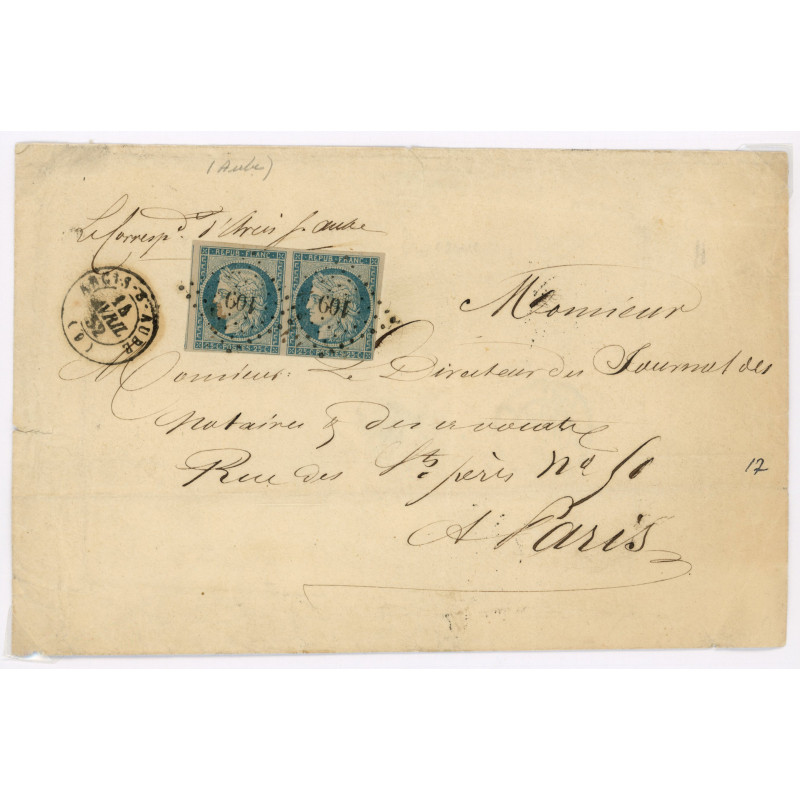 (Aube)
Le Corresp.d d'Arcis s. aube
REPUB. FRANC. REPUB. FRANC.
109 109
25 C POSTES 25 C 25 C POSTES 25 C
ARCIS-S-AUBE
14
AVRIL
52
(9)
Monsieur
Monsieur Le Directeur des Journal des
notaires & des avocats
Rue des Sts pères No 50
17
A: Paris